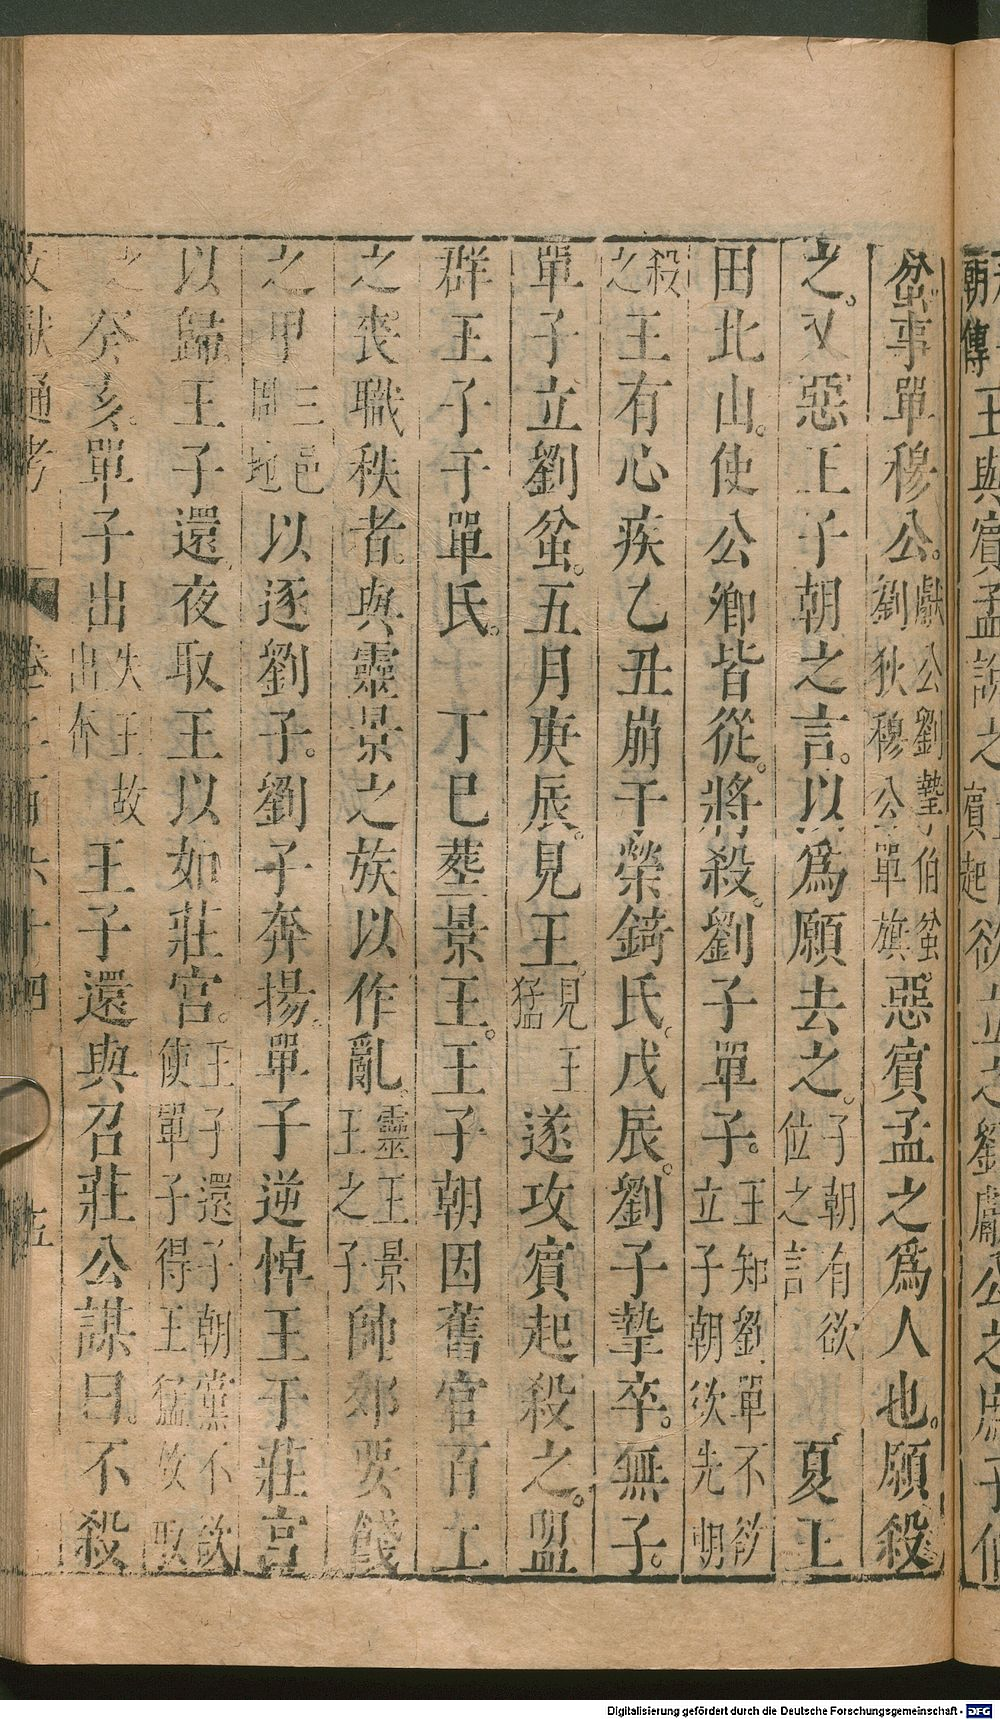 朝傳王與賓孟說之賓起欲立之劉獻公之庶子伯
蚠事單穆公。獻公劉摯伯蚠。劉狄穆公單旗惡賓孟之爲人也。願殺
之。又惡王子朝之言。以爲願去之。子朝有欲位之言夏王
田北山。使公卿皆從。將殺劉子單子。王知劉單不欲立子朝欲先朝
殺之王有心疾乙丑崩于榮錡氏。戊辰。劉子摯卒。無子。
單子立劉蚠。五月庚辰。見王。見王猛遂攻賓起殺之。盟
群王子于單氏。丁巳葬景王。王子朝因舊官百工
之喪職秩者。與靈景之族以作亂。靈王景王之子帥郊要餞
之甲三邑周地以逐劉子。劉子奔揚。單子逆悼王于莊宮
以歸王子還夜取王以如莊宮。王子還子朝黨不欲使單子得王猛故取
之癸亥。單子出失王故出奔王子還與召莊公謀曰。不殺
文獻通考 卷二百六十四 五
Digitalisierung gefördert durch die Deutsche Forschungsgemeinschaft - DFG